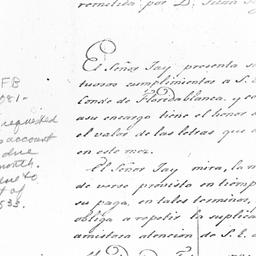 remitida por D. Juan
El Señor Jay presenta su
tuosos cumplimientos a S. E.
Conde de Floridablanca, y co
asu encargo tiene el honor d
el valor de las letras que d
en este mes.
El Señor Jay mira, la n
de verse provisto en tiemp
su paga, en tales terminos, q
obliga a repetir la suplica
amistosa atencion de S. E. a
FB
081-
requested
account
due
month.
to
of